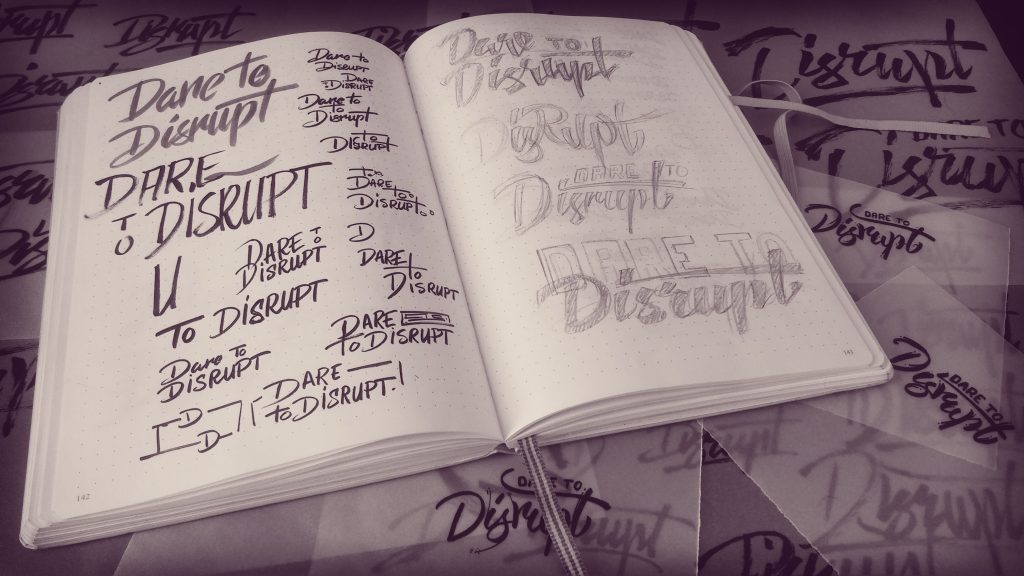 Dare to
Disrupt
DARE
TO DISRUPT
U
DARE TO
DISRUPT
TO DISRUPT
Dare To
DISRUPT
D
D
DARE
to DISRUPT
Dare to
DISRUPT
DARE
DISRUPT
Dare to
to
Disrupt
to
DISRUPT
to
DARE
to
DISRUPT
D
DARE
to
DISRUPT
DARE
to DISRUPT
142
Dare TO
Disrupt
DisRupt
DARE TO
Disrupt
DARE TO
Disrupt
143
Disrupt
Disrupt
DARE TO
Disrupt
DARE TO
Disrupt
DARE TO
Disrupt
DARE TO
Disrupt
Disrupt